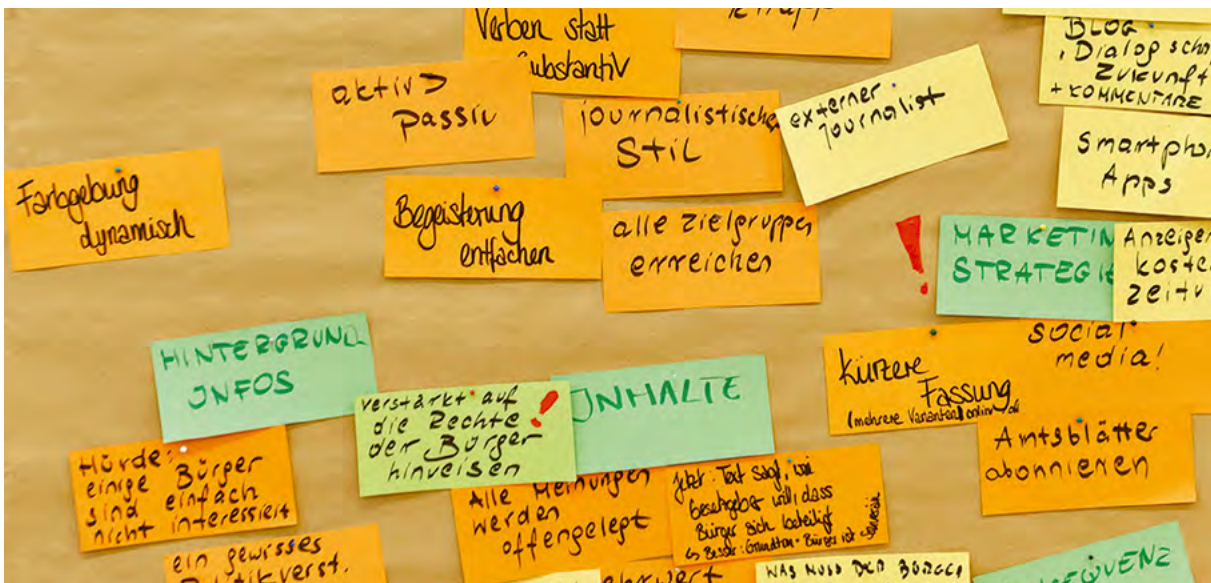 Verben statt
Substantiv
knapp
BLOG
Dialog
Zukunft
+ KOMMENTARE
aktiv >
passiv
journalistischer
Stil
externer
journalist
Smartphon
Apps
Farbgebung
dynamisch
Begeisterung
entfachen
alle Zielgruppen
erreichen
!
MARKETIN
STRATEGIE
Anzeigen
koste
zeitu
HINTERGRUND
INFOS
verstärkt auf
die Rechte
der Bürger
hinweisen
!
INHALTE
social
media!
kürzere
Fassung
(mehrere Varianten) online
Amtsblätter
abonnieren
Hürde:
einige Bürger
sind einfach
nicht interessiert
Alle Meinungen
werden
offengelegt
Jetzt: Text sagt, wie
Gesetzgeber will, dass
Bürger sich beteiligt
Besser: Grundton - Bürger ist
ein gewisses
Politikverst.
WAS MUSS DER BÜRGER